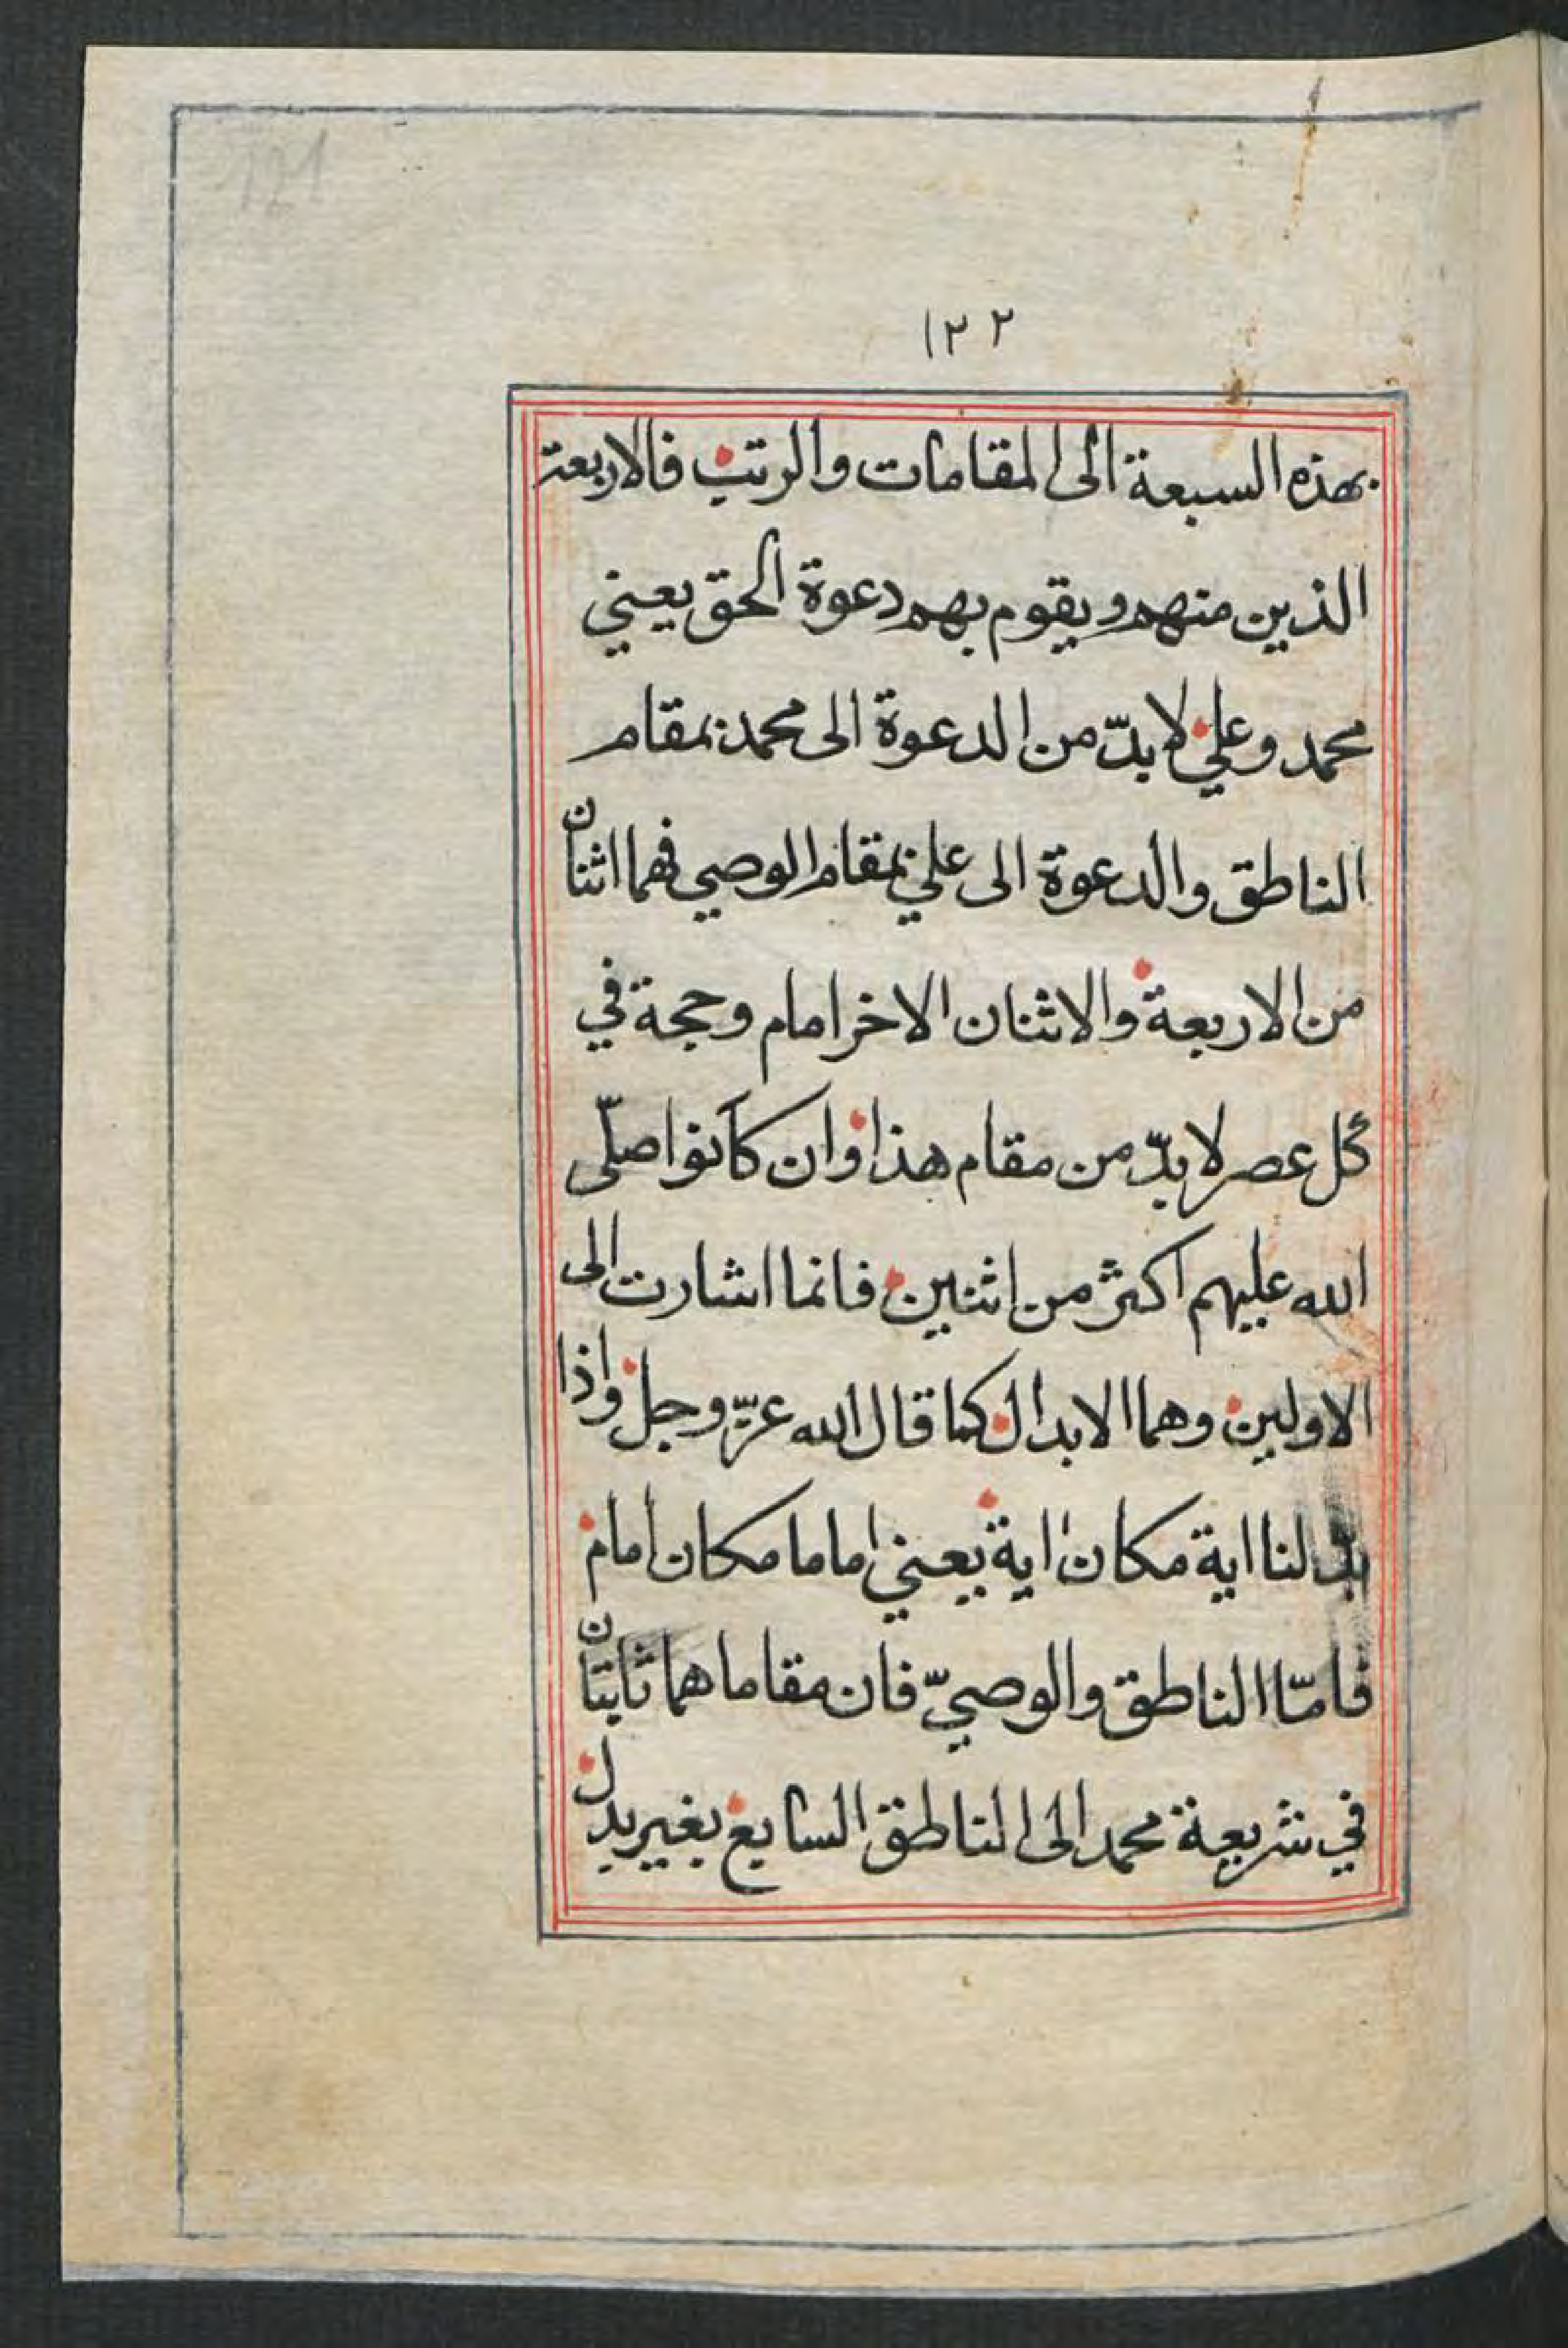 121
١٢٢
بهذه السبعة الى المقامات والرتب فالاربعة
الذين منهم ويقوم بهم دعوة الحق يعني
محمد وعلي لا بدّ من الدعوة الى محمد بمقام
الناطق والدعوة الى علي بمقام الوصي فهما اثنان
من الاربعة والاثنان الاخر امام وحجة في
كل عصر لا بدّ من مقام هذا وان كانوا صلّى
الله عليهم اكثر من اثنين فانما اشارت الى
الاولين وهما الابدال كما قال الله عزّ وجل واذا
بدلنا اية مكان اية يعني اماما مكان امام
فامّا الناطق والوصيّ فان مقاما هما ثابتان
في شريعة محمد الى الناطق السابع بغير بدل